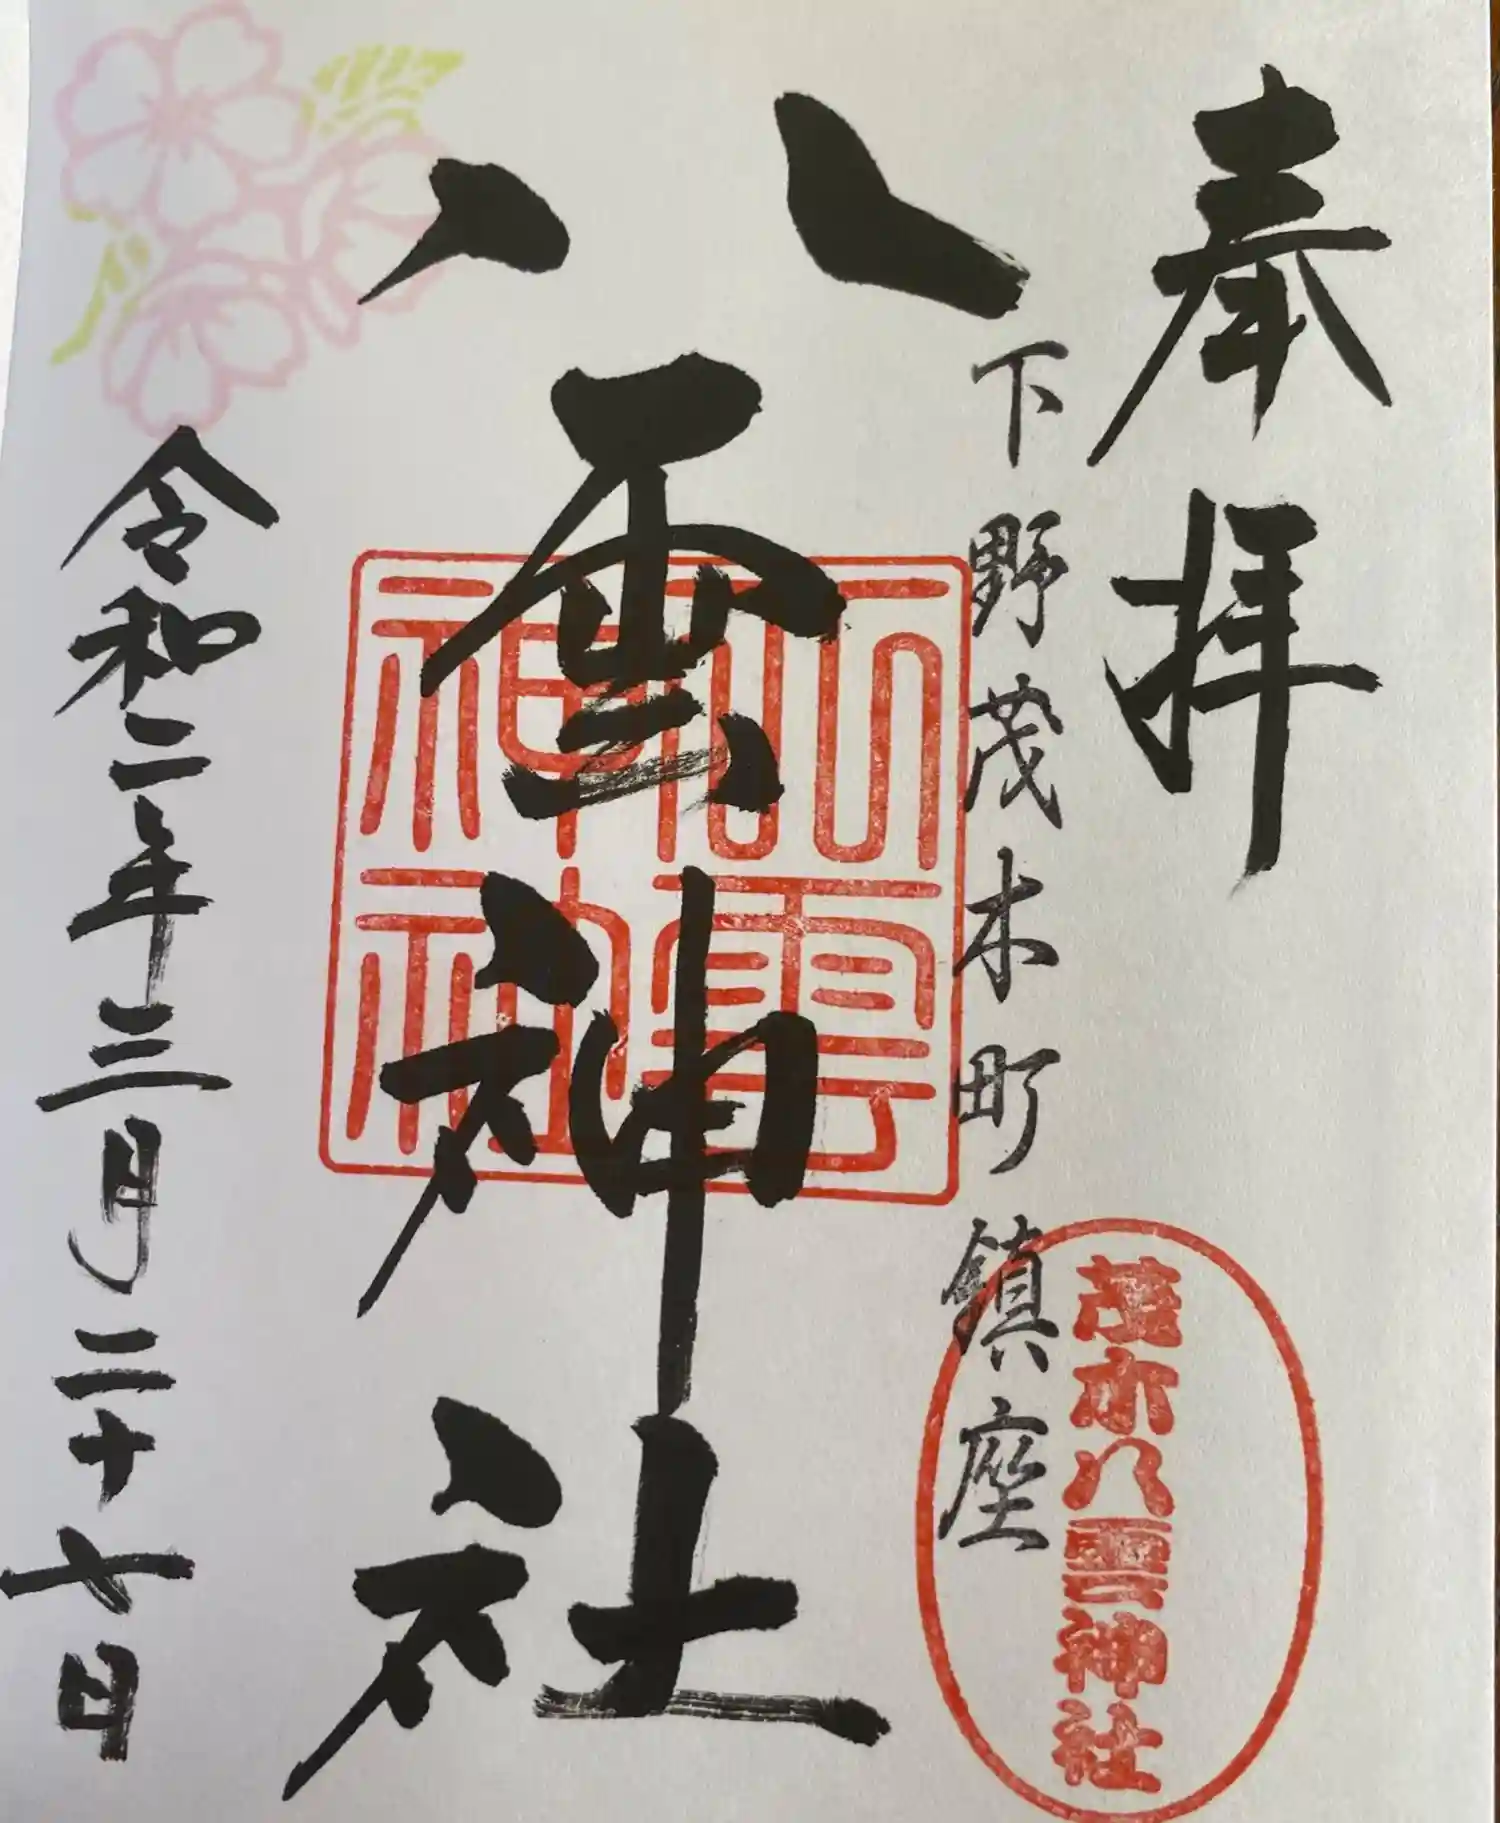 奉拝
下野茂木町鎮座
茂木八雲神社
八雲神社
八雲
神社
令和二年三月二十七日